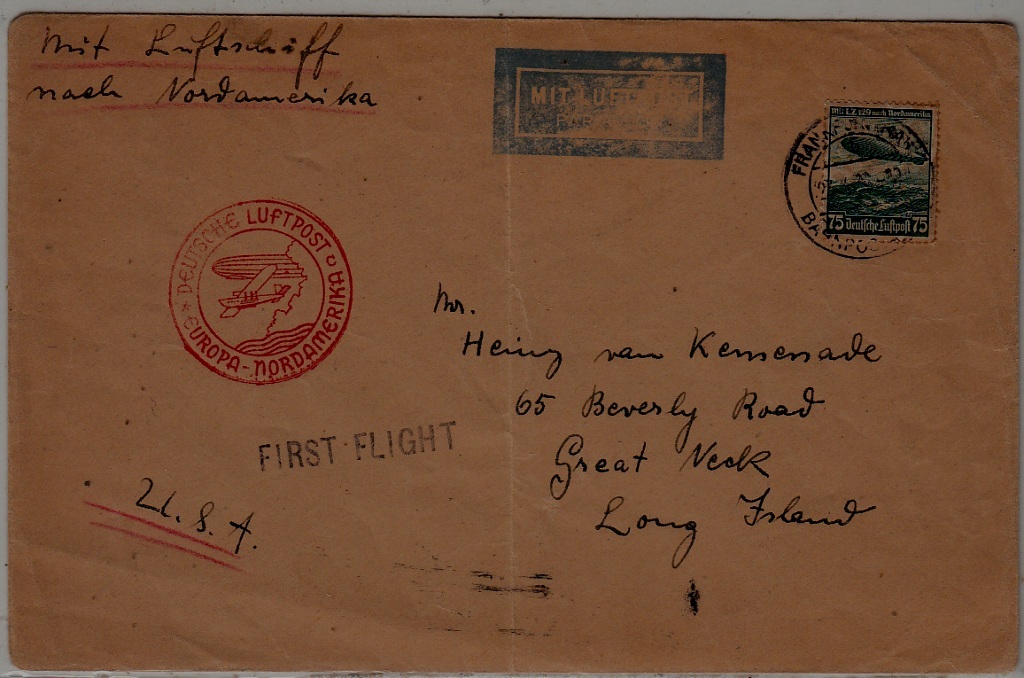 Mit Luftschiff
nach Nordamerika
MIT LUFTPOST
PAR AVION
mit LZ 129 nach Nordamerika
75 Deutsche Luftpost 75
FRANKFURT
BAHNPOST
DEUTSCHE LUFTPOST
EUROPA-NORDAMERIKA
Mr.
Heinz van Kemenade
65 Beverly Road
Great Neck
Long Island
FIRST FLIGHT
U.S.A.